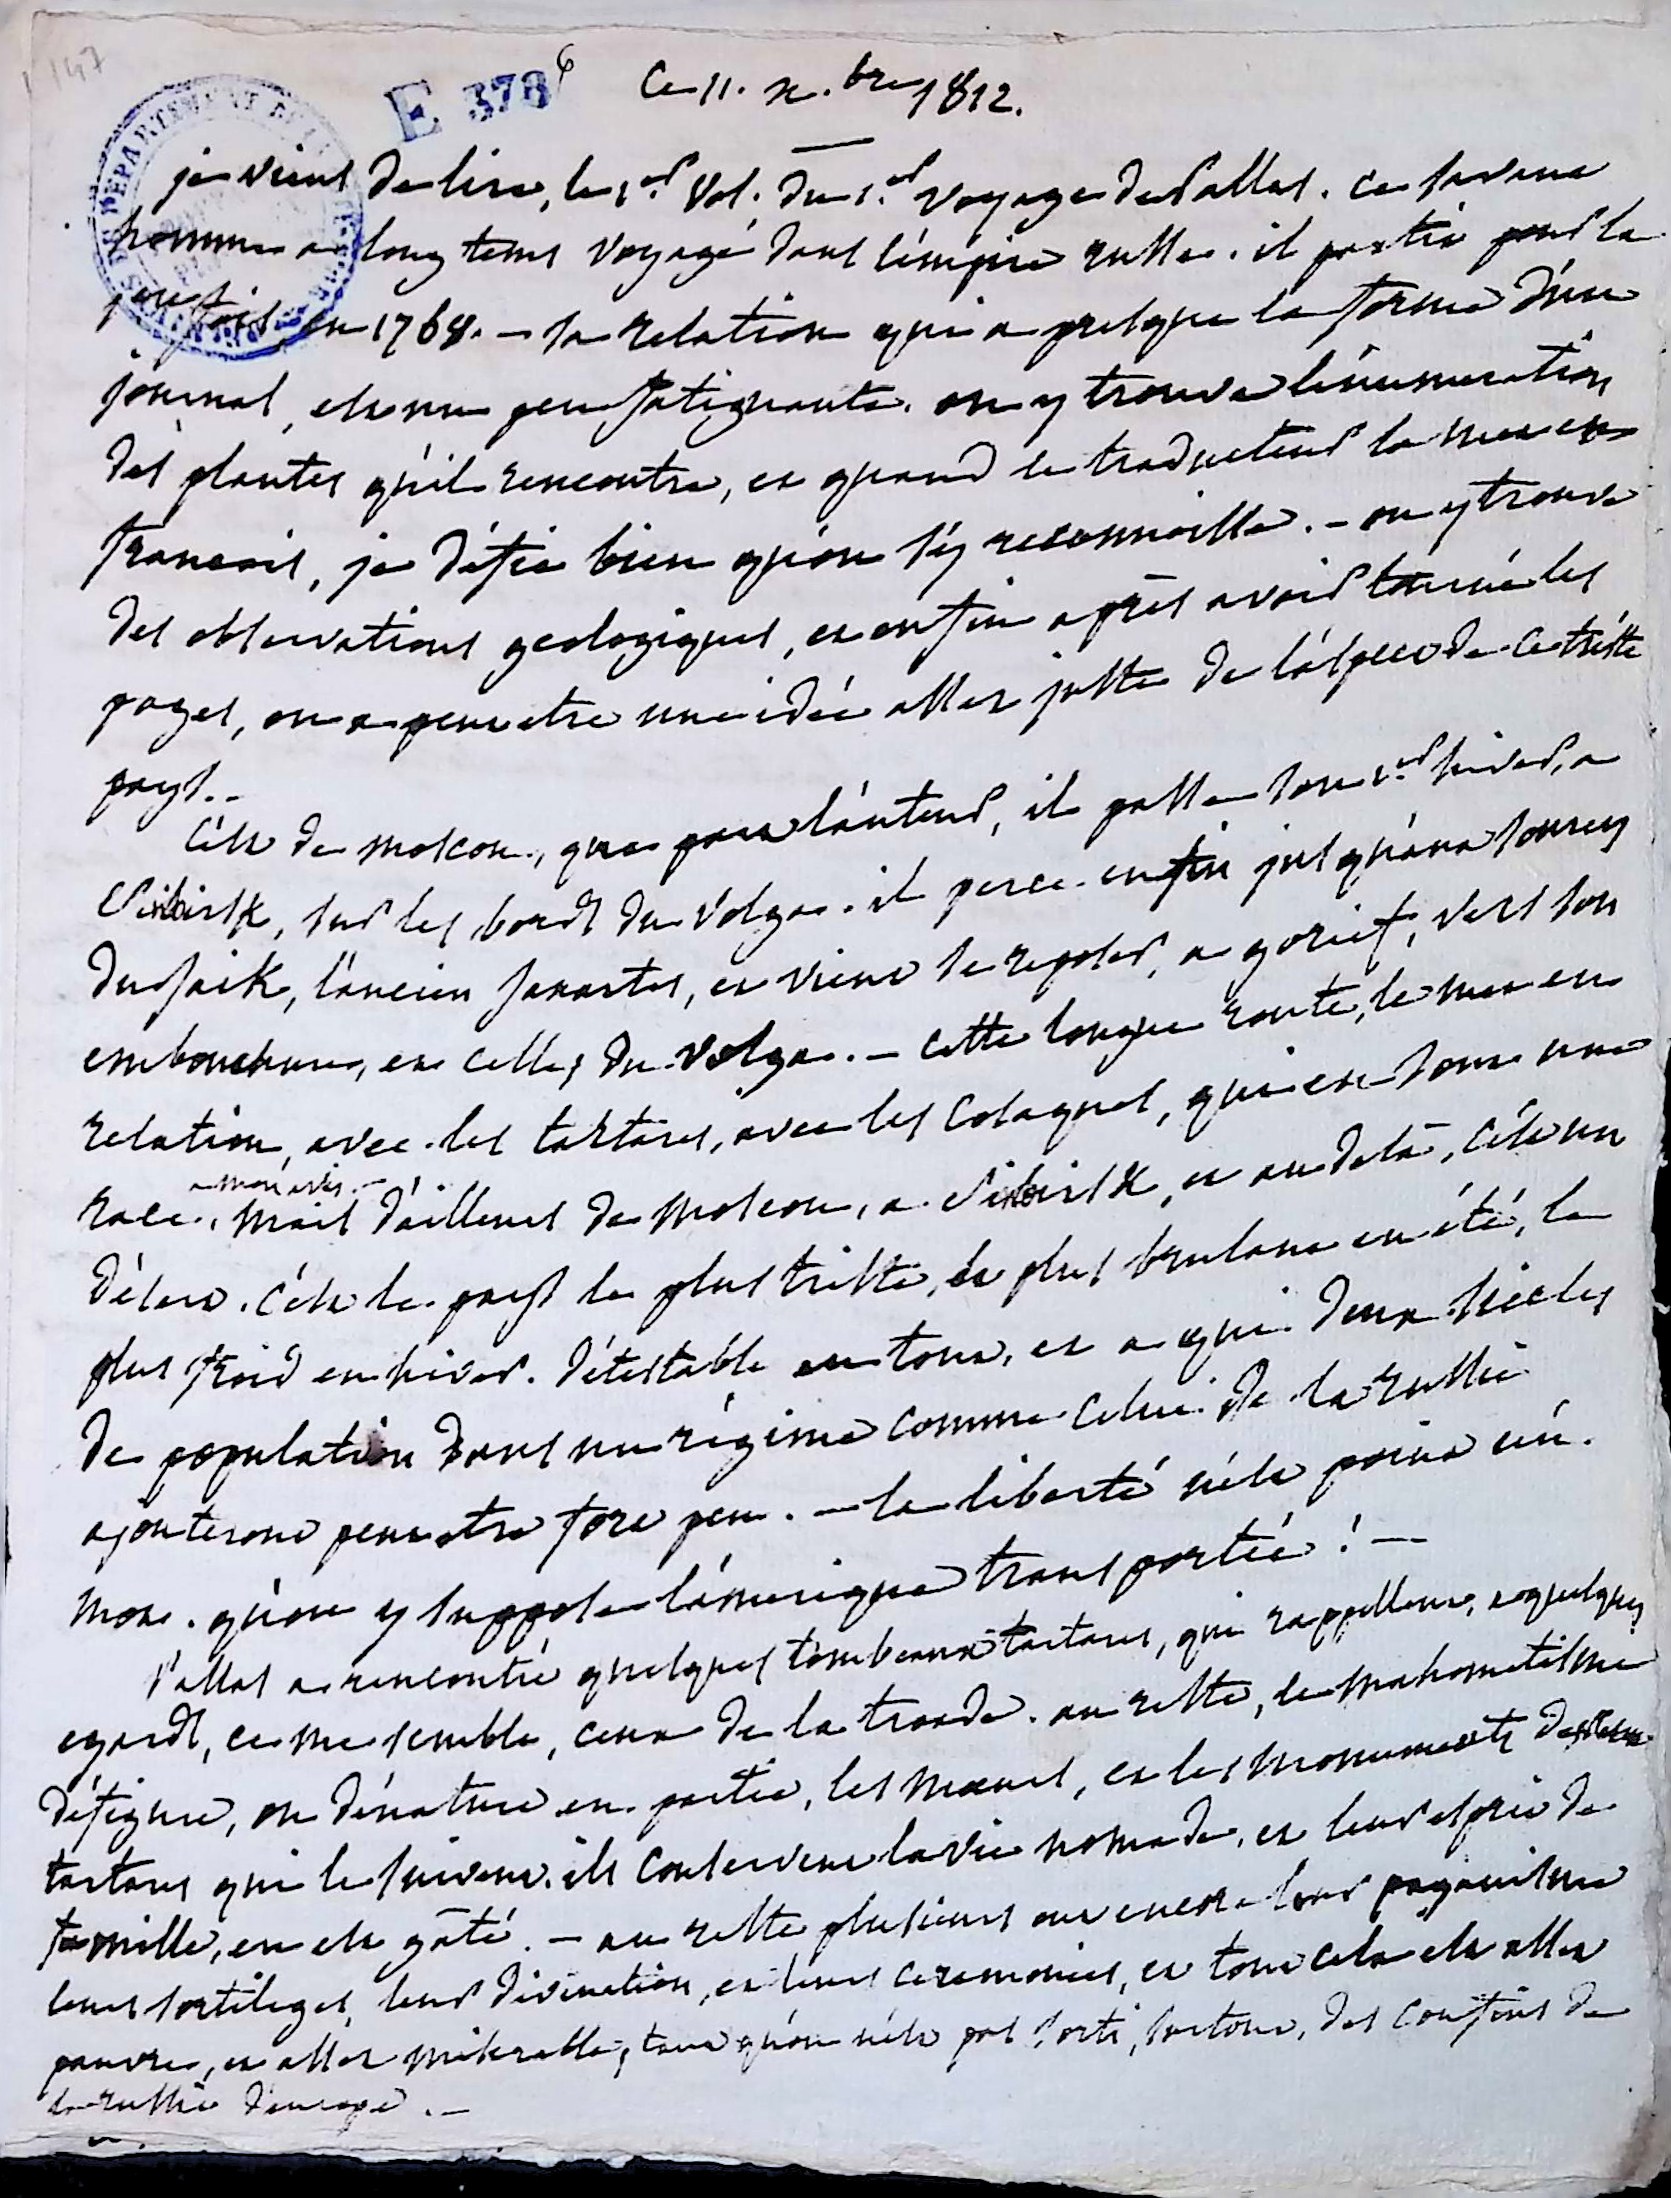 147
E 378 6
Ce 11. xbre 1812.
je viens de lire, le 1er. vol. du 1er. voyage de Pallas. ce savant
homme a long tems voyagé dans l'émpire russe. il partit pour la
1ere fois en 1768. - sa relation qui a presque la forme d'un
journal, est un peu fatiguante. on y trouve l'énumeration
des plantes qu'il rencontre, et quand le traducteur la met en
francais, je défie bien qu'on s'y reconnoisse. - on y trouve
des observations geologiques, et enfin après avoir tourné les
pages, on a peut etre une idée assez juste de l'áspect de ce triste
pays. -
C'ést de moscou, que part l'auteur, il passe son 1er hiver, a
Sinbirsk, sur les bords du Volga. il perce enfin jusqu'aux sources
du Jaïk, l'ancien Jaxartes, et vient se reposer, a gorief, vers son
embouchure, et celle, du Volga. - cette longue route, le met en
relation, avec les tartares, avec les cosaques, qui en sont une
race, a mon avis. - mais d'ailleurs de moscou, a Sinbirsk, et au dela, c'ést un
désert. c'ést le pays le plus triste, le plus brulant en été, le
plus froid en hiver. détestable en tout, et a qui deux siecles
de population dans un régime comme celui de la russie
ajouteront peut etre fort peu. - la liberté n'ést point un
mot. qu'on y suppose l'ámerique transportée ! -
Pallas a rencontré quelques tombeaux tartares, qui rappellent, a quelques
egards, ce me semble, ceux de la troade. au reste, le mahometisme
défigure, ou dénature en partie, les mœurs, et les monuments des
tartares qui le suivent. ils conservent la vie nomade, et leur esprit de
famille, en est gâté. - au reste plusieurs ont encore leur paganisme
leurs sortileges, leur divination, et leurs ceremonies, et tout cela est assez
pauvre, et assez miserable, tant qu'on n'ést pas sorti, surtout, des confins de
la russie d'europe. -